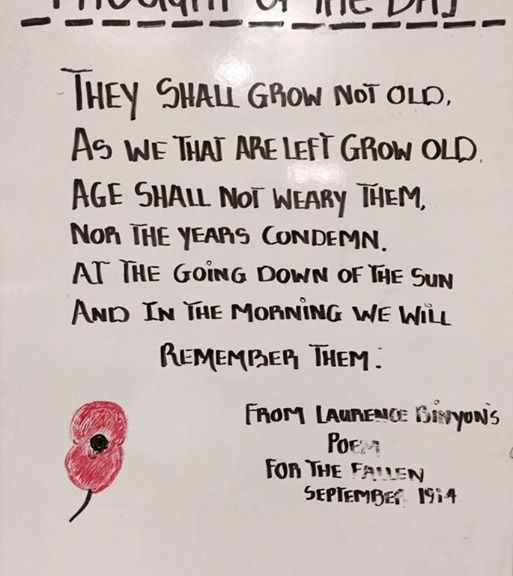 THOUGHT OF THE DAY
THEY SHALL GROW NOT OLD,
AS WE THAT ARE LEFT GROW OLD,
AGE SHALL NOT WEARY THEM,
NOR THE YEARS CONDEMN.
AT THE GOING DOWN OF THE SUN
AND IN THE MORNING WE WILL
REMEMBER THEM.
FROM LAURENCE BINYON'S
POEM
FOR THE FALLEN
SEPTEMBER 1914